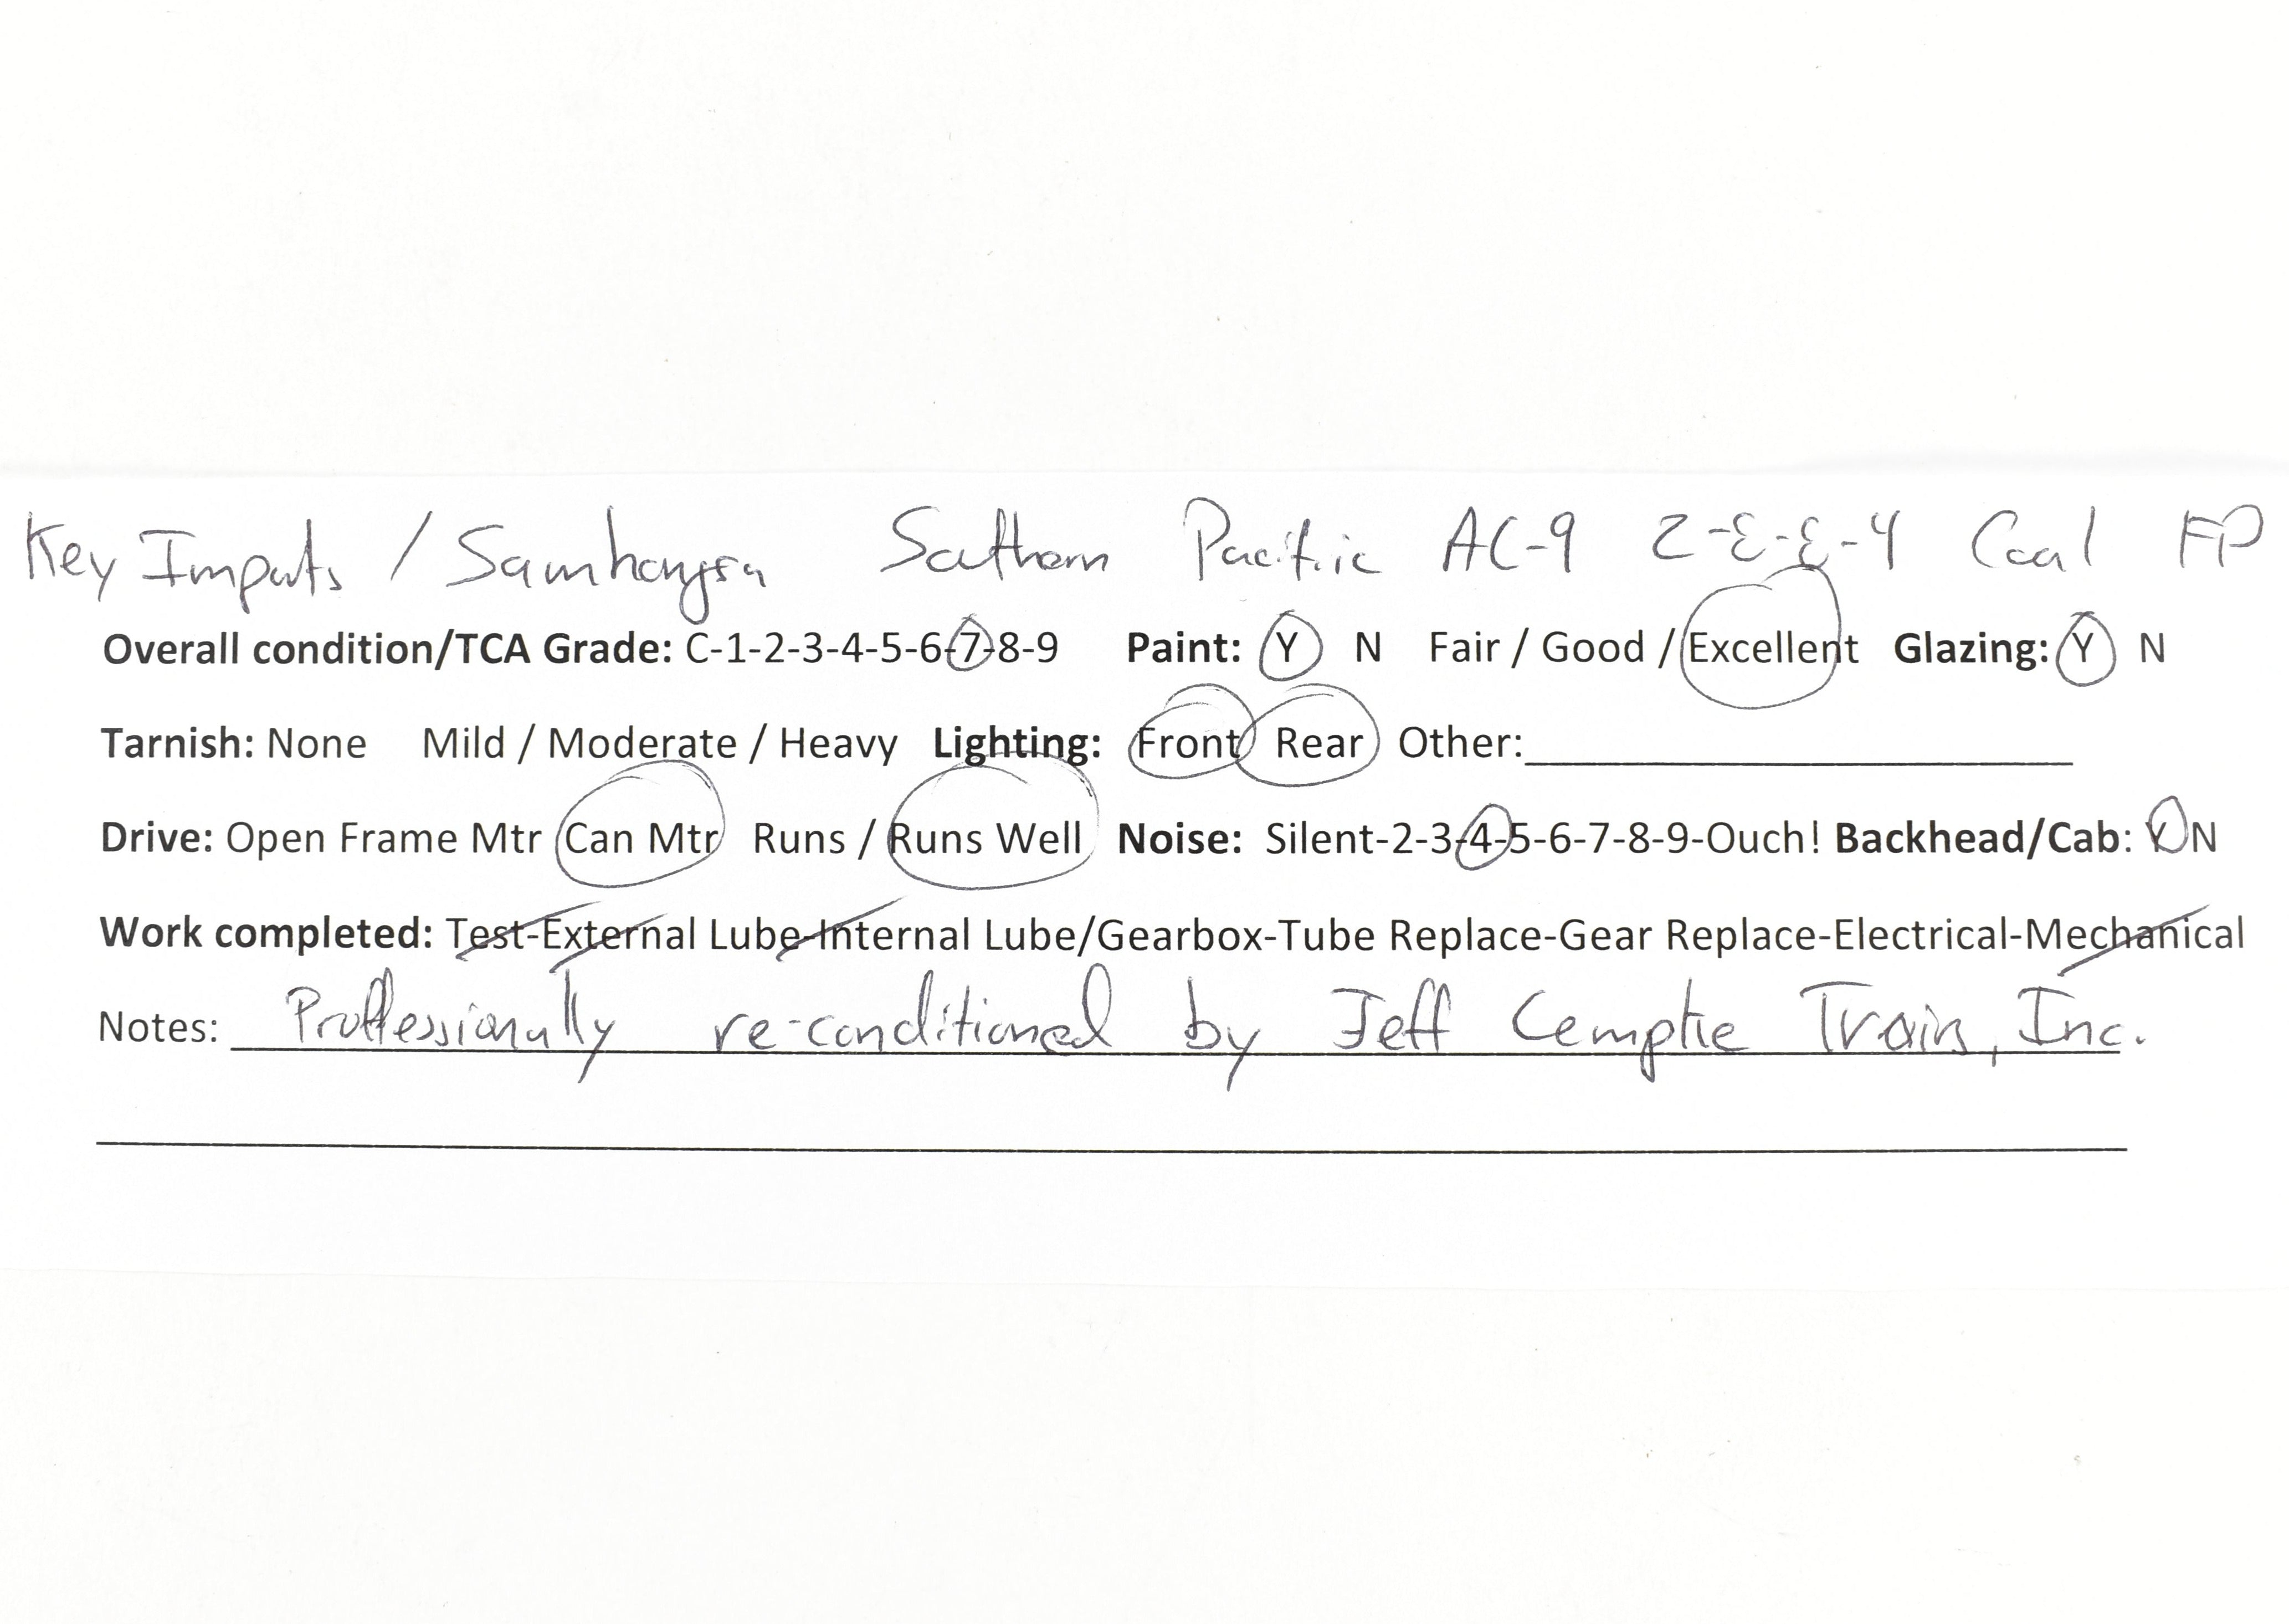 Key Imports / Samhongsa Southern Pacific AC-9 2-8-8-4 Coal FP
Overall condition/TCA Grade: C-1-2-3-4-5-6-7-8-9 Paint: Y N Fair / Good / Excellent Glazing: Y N
Tarnish: None Mild / Moderate / Heavy Lighting: Front Rear Other:
Drive: Open Frame Mtr Can Mtr Runs / Runs Well Noise: Silent-2-3-4-5-6-7-8-9-Ouch! Backhead/Cab: Y N
Work completed: Test-External Lube-Internal Lube/Gearbox-Tube Replace-Gear Replace-Electrical-Mechanical
Notes: Proffessionally re-conditioned by Jeff Lemke Trains, Inc.